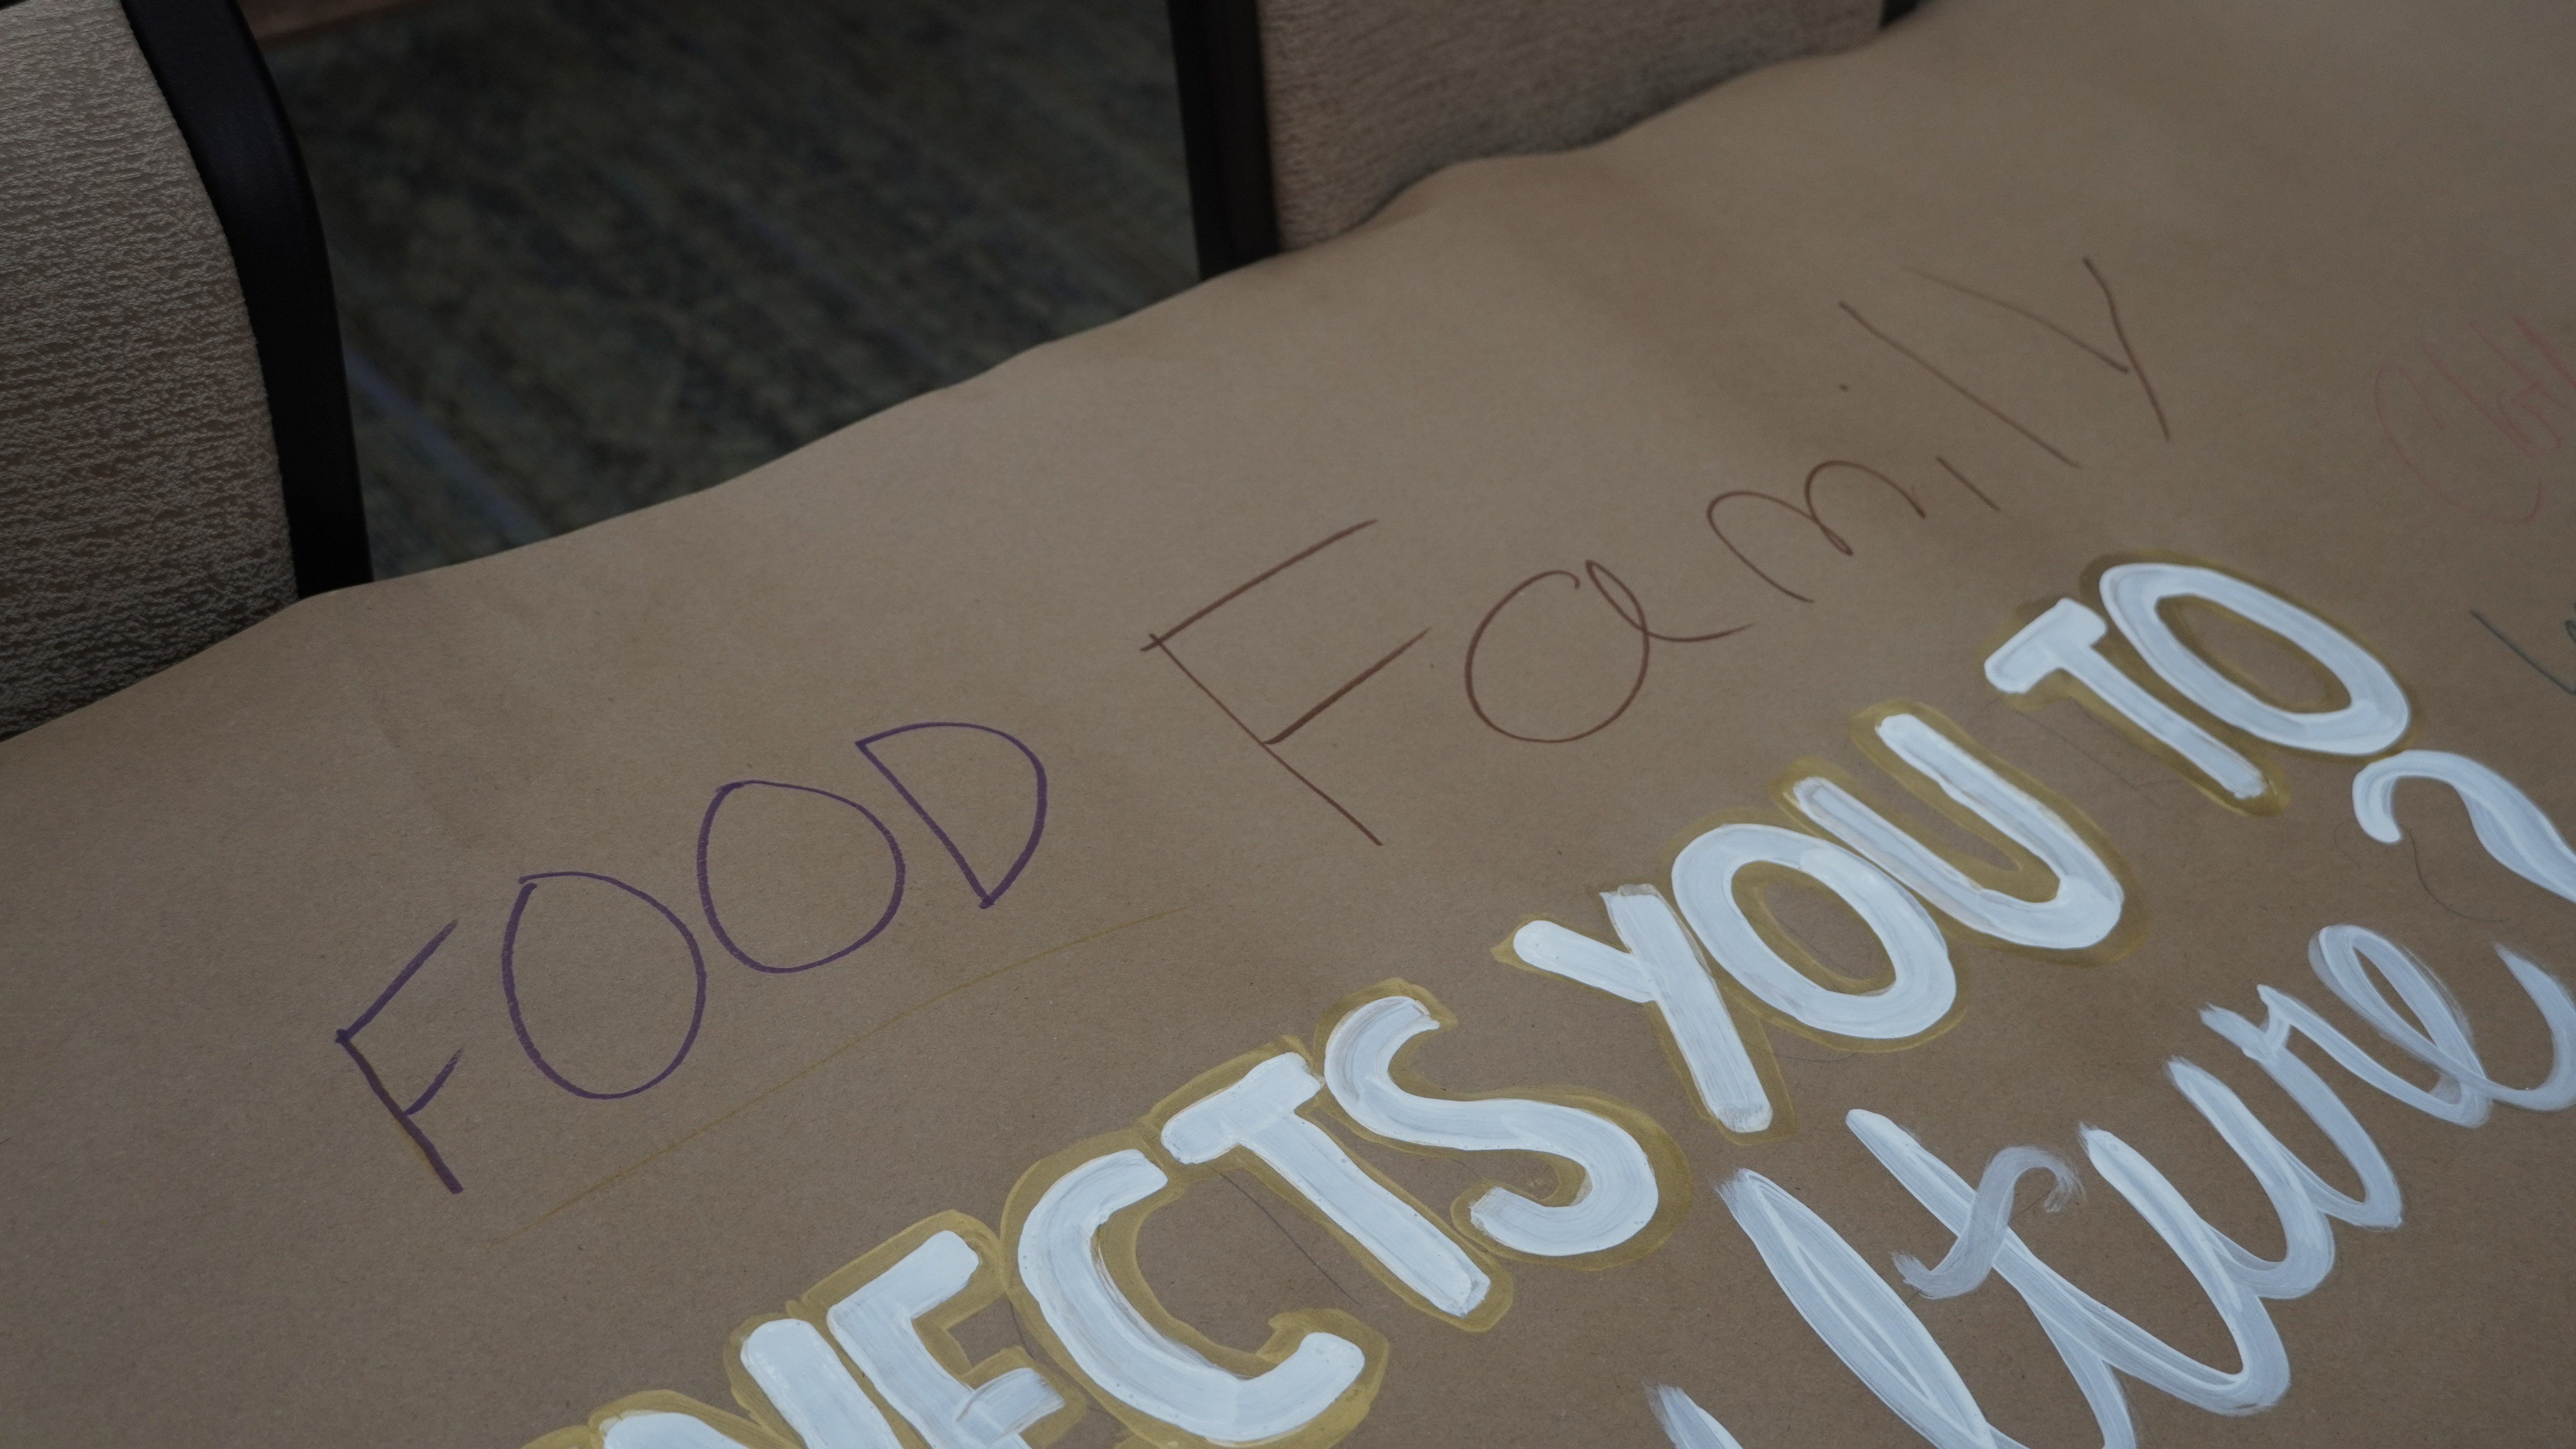 FOOD Family
NECTS YOU TO
lture?